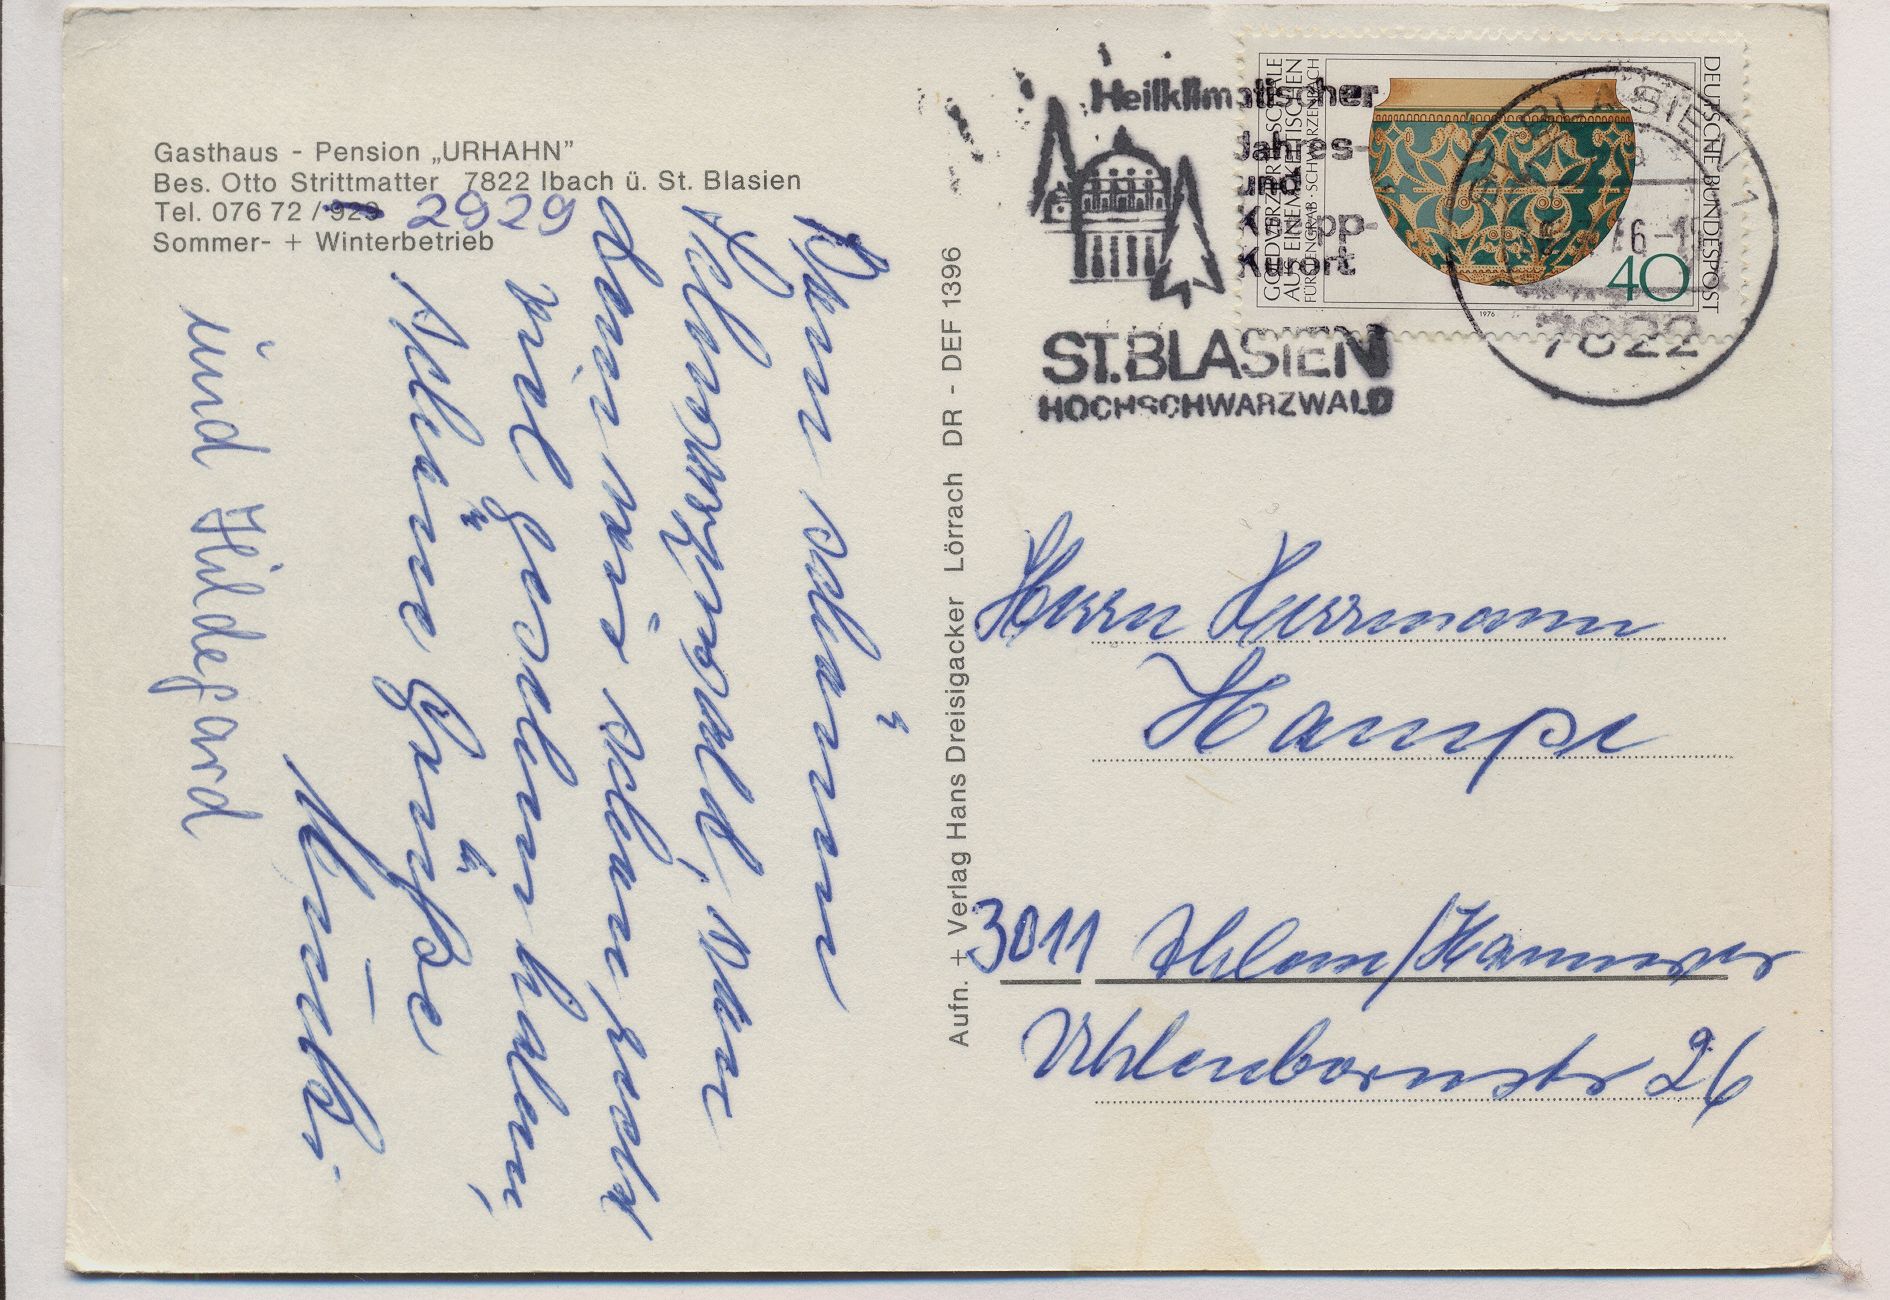 Gasthaus - Pension „URHAHN"
Bes. Otto Strittmatter 7822 Ibach ü. St. Blasien
Tel. 076 72 / 929 2929
Sommer- + Winterbetrieb
Vom schönen
Schwarzwald, von
dem wir schon
viel gesehen haben,
schöne Grüße
und Hildegard
Aufn. + Verlag Hans Dreisigacker Lörrach DR - DEF 1396
Heilklimatischer
Jahres-
und
Kneipp-
Kurort
ST.BLASIEN
HOCHSCHWARZWALD
GOLDVERZIERTE SCHALE
AUS EINEM KELTISCHEN
FÜRSTENGRAB SCHWARZENBACH
DEUTSCHE BUNDESPOST
40
1976
ST BLASIEN 1
7822
Herrn Herrmann
Hampe
3011 Ahlem/Hannover
Uhlenbornstr 26